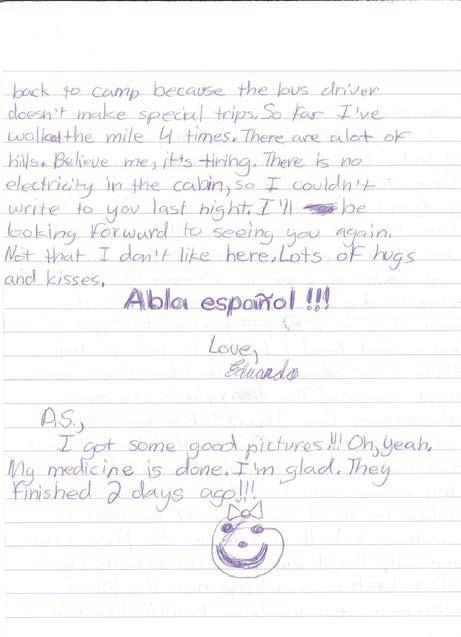 back to camp because the bus driver
doesn't make special trips. So far I've
walked the mile 4 times. There are alot of
hills. Believe me, it's tiring. There is no
electricity in the cabin, so I couldn't
write to you last night. I'll be
looking forward to seeing you again.
Not that I don't like here. Lots of hugs
and kisses.
Abla español !!!
Love,
Eduardo
P.S.,
I got some good pictures!!! Oh, yeah.
My medicine is done. I'm glad. They
finished 2 days ago!!!